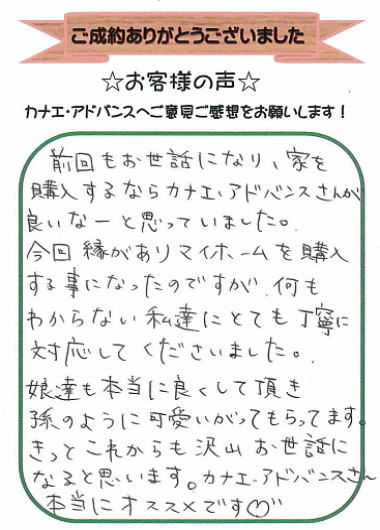 ご成約ありがとうございました
☆お客様の声☆
カナエ・アドバンスへご意見ご感想をお願いします！
前回もお世話になり、家を
購入するならカナエ・アドバンスさんが
良いなーと思っていました。
今回縁がありマイホームを購入
する事になったのですが、何も
わからない私達にとても丁寧に
対応してくださいました。
娘達も本当に良くして頂き
孫のように可愛いがってもらってます。
きっとこれからも沢山お世話に
なると思います。カナエ・アドバンスさん
本当にオススメです♡